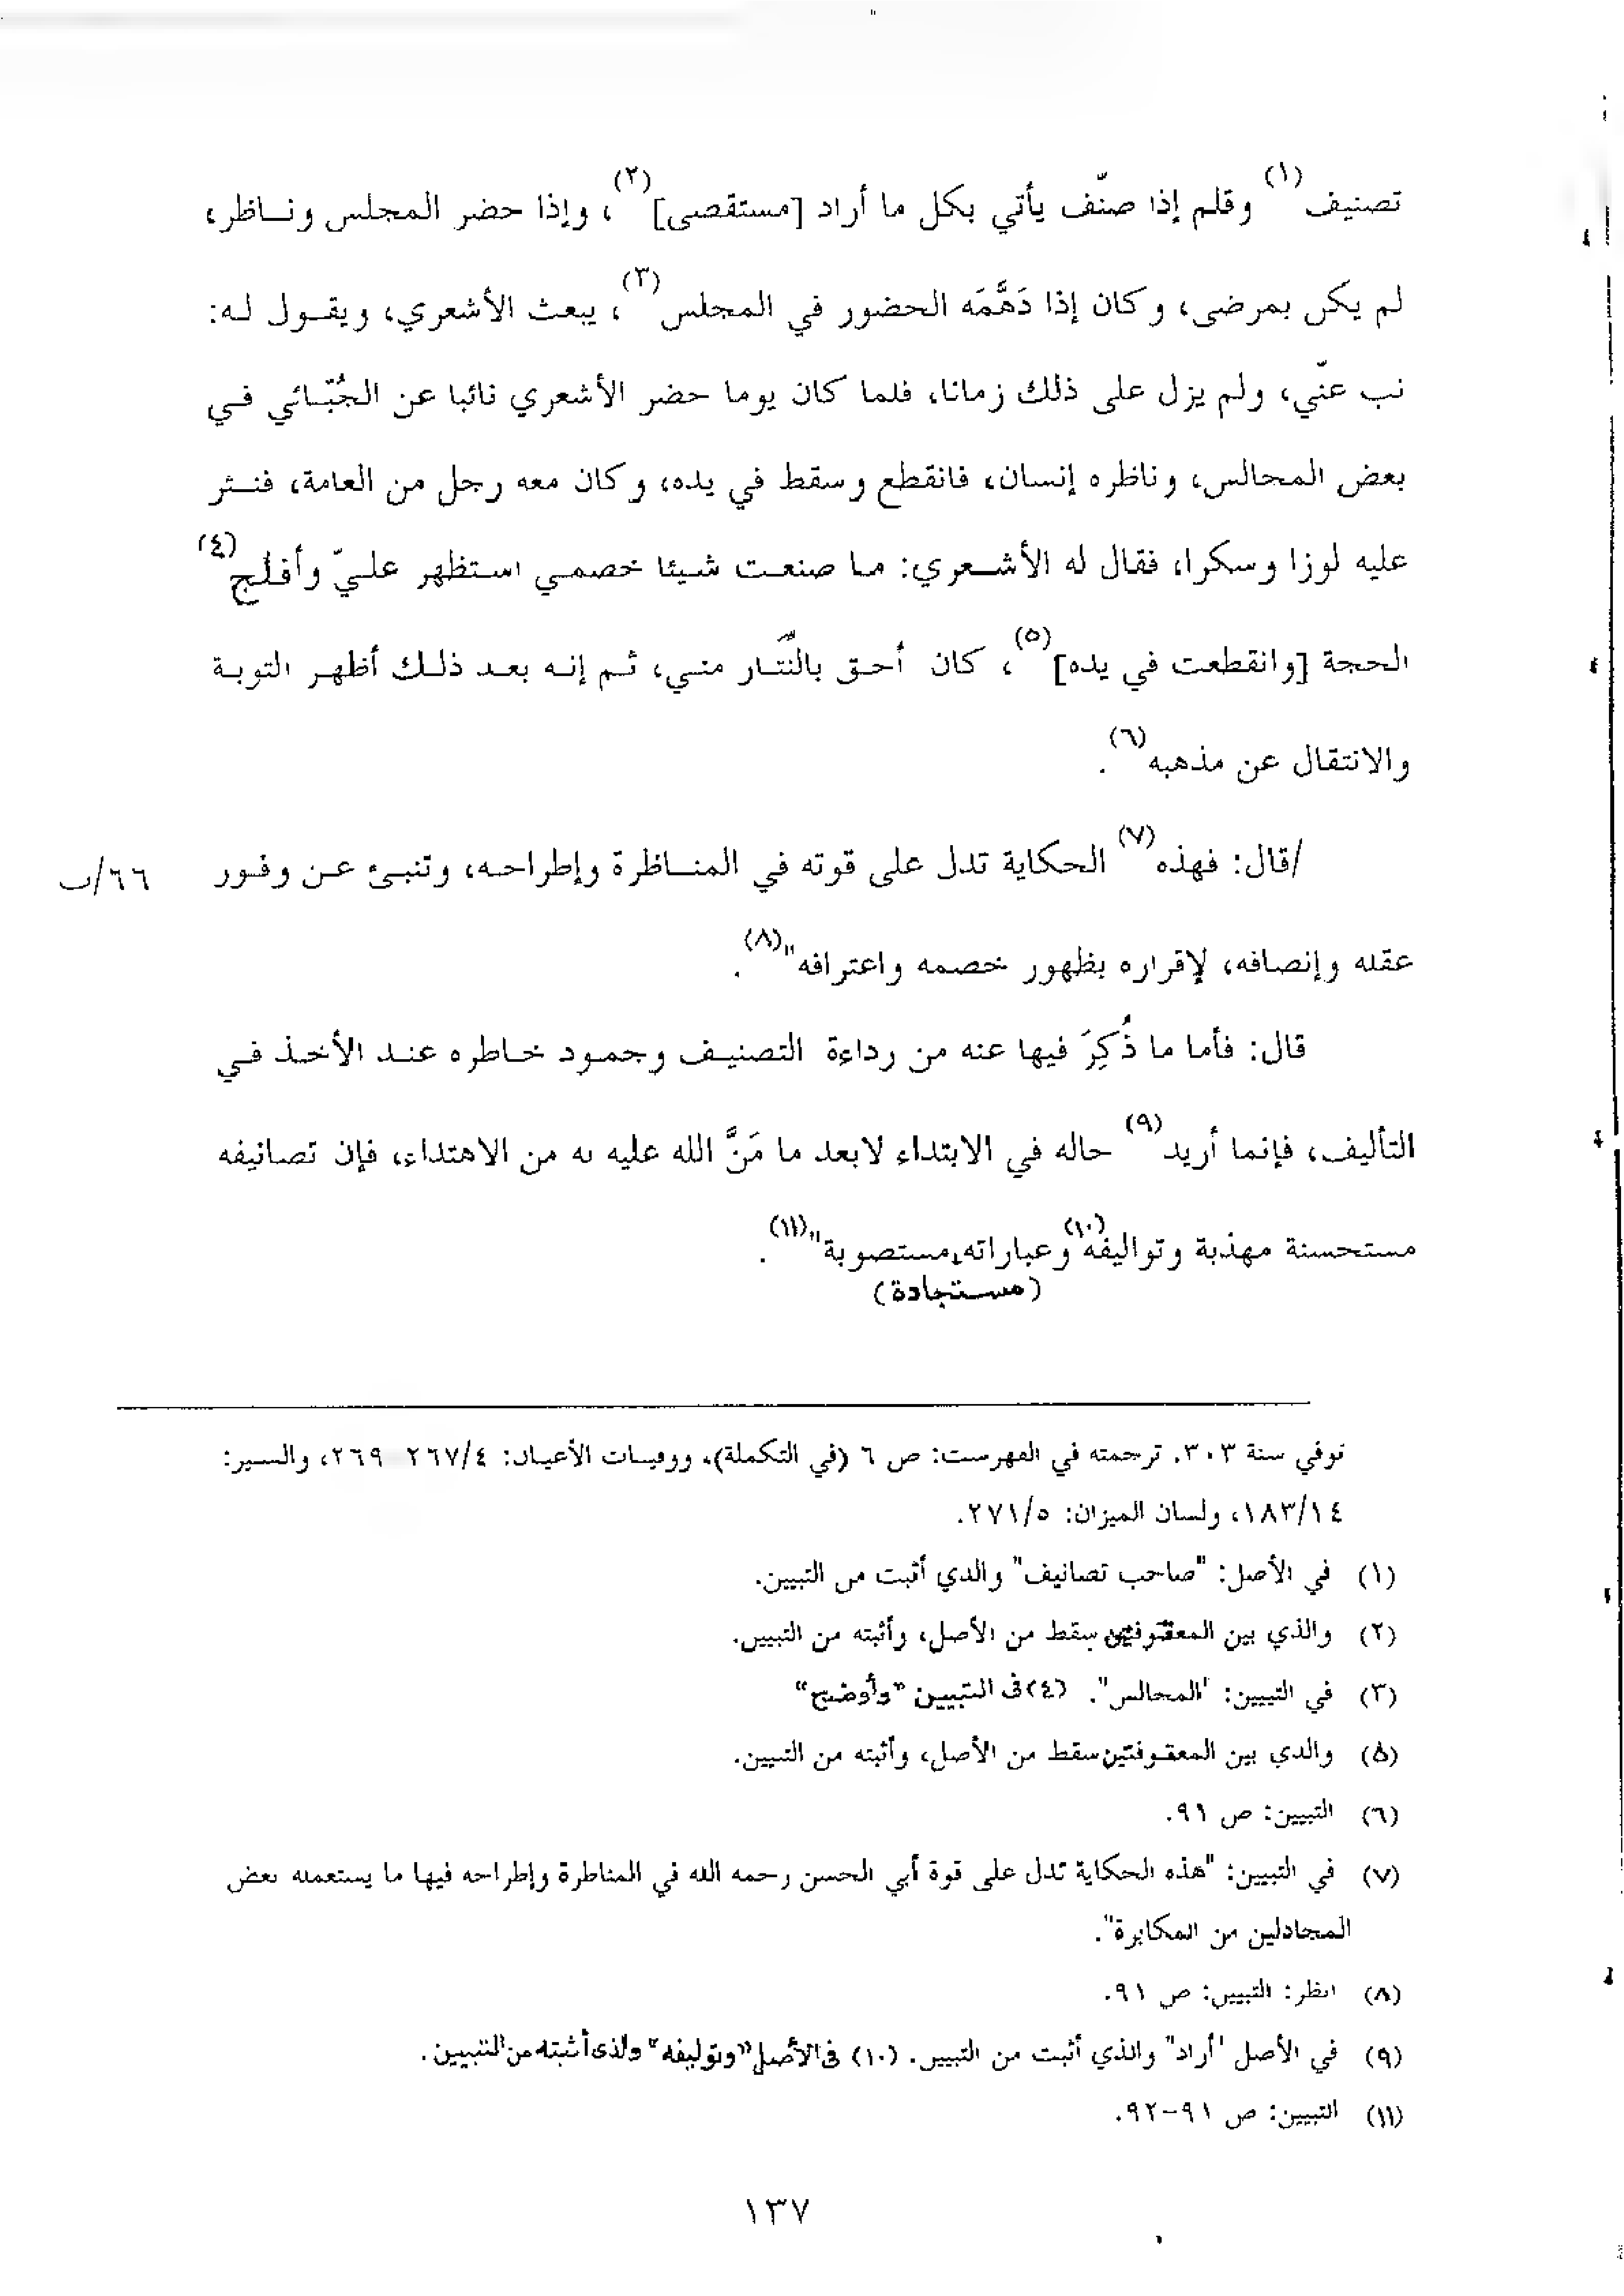 تصنيف(١) وقلم إذا صنّف يأتي بكل ما أراد [مستقصى](٢)، وإذا حضر المجلس ونـاظر،
لم يكن بمرضى، وكان إذا دَهَّمَه الحضور في المجلس(٣)، يبعث الأشعري، ويقول له:
نب عنّي، ولم يزل على ذلك زمانا، فلما كان يوما حضر الأشعري نائبا عن الجُبّائي في
بعض المجالس، وناظره إنسان، فانقطع وسقط في يده، وكان معه رجل من العامة، فنثر
عليه لوزا وسكرا، فقال له الأشعري: ما صنعت شيئا خصمي استظهر عليّ وأفلج(٤)
الحجة [وانقطعت في يده](٥)، كان أحق بالنُّثار مني، ثم إنه بعد ذلك أظهر التوبة
والانتقال عن مذهبه(٦).
/قال: فهذه(٧) الحكاية تدل على قوته في المناظرة وإطراحه، وتنبئ عن وفور ٦٦/ب
عقله وإنصافه، لإقراره بظهور خصمه واعترافه"(٨).
قال: فأما ما ذُكِرَ فيها عنه من رداءة التصنيف وجمود خاطره عند الأخذ في
التأليف، فإنما أريد(٩) حاله في الابتداء لابعد ما مَنَّ الله عليه به من الاهتداء، فإن تصانيفه
مستحسنة مهذبة وتواليفه(١٠) وعباراته مستصوبة"(١١).
(مستجادة)
توفي سنة ٣٠٣. ترجمته في الفهرست: ص ٦ (في التكملة)، ووفيات الأعيان: ٢٦٧/٤-٢٦٩، والسير:
١٨٣/١٤، ولسان الميزان: ٢٧١/٥.
(١) في الأصل: "صاحب تصانيف" والذي أثبت من التبيين.
(٢) والذي بين المعقوفتين سقط من الأصل، وأثبته من التبيين.
(٣) في التبيين: "المجالس". (٤) في التبيين «وأوضح»
(٥) والذي بين المعقوفتين سقط من الأصل، وأثبته من التبيين.
(٦) التبيين: ص ٩١.
(٧) في التبيين: "هذه الحكاية تدل على قوة أبي الحسن رحمه الله في المناظرة وإطراحه فيها ما يستعمله بعض
المجادلين من المكابرة".
(٨) انظر: التبيين: ص ٩١.
(٩) في الأصل "أراد" والذي أثبت من التبيين. (١٠) في الأصل «وتوليفه» والذي أثبته من التبيين.
(١١) التبيين: ص ٩١-٩٢.
١٣٧